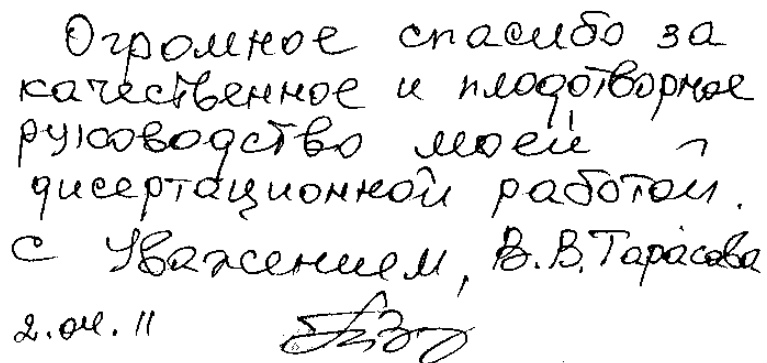 Огромное спасибо за
качественное и плодотворное
руководство моей
дисертационной работой.
С Уважением, В.В.Тарасова
2.04.11